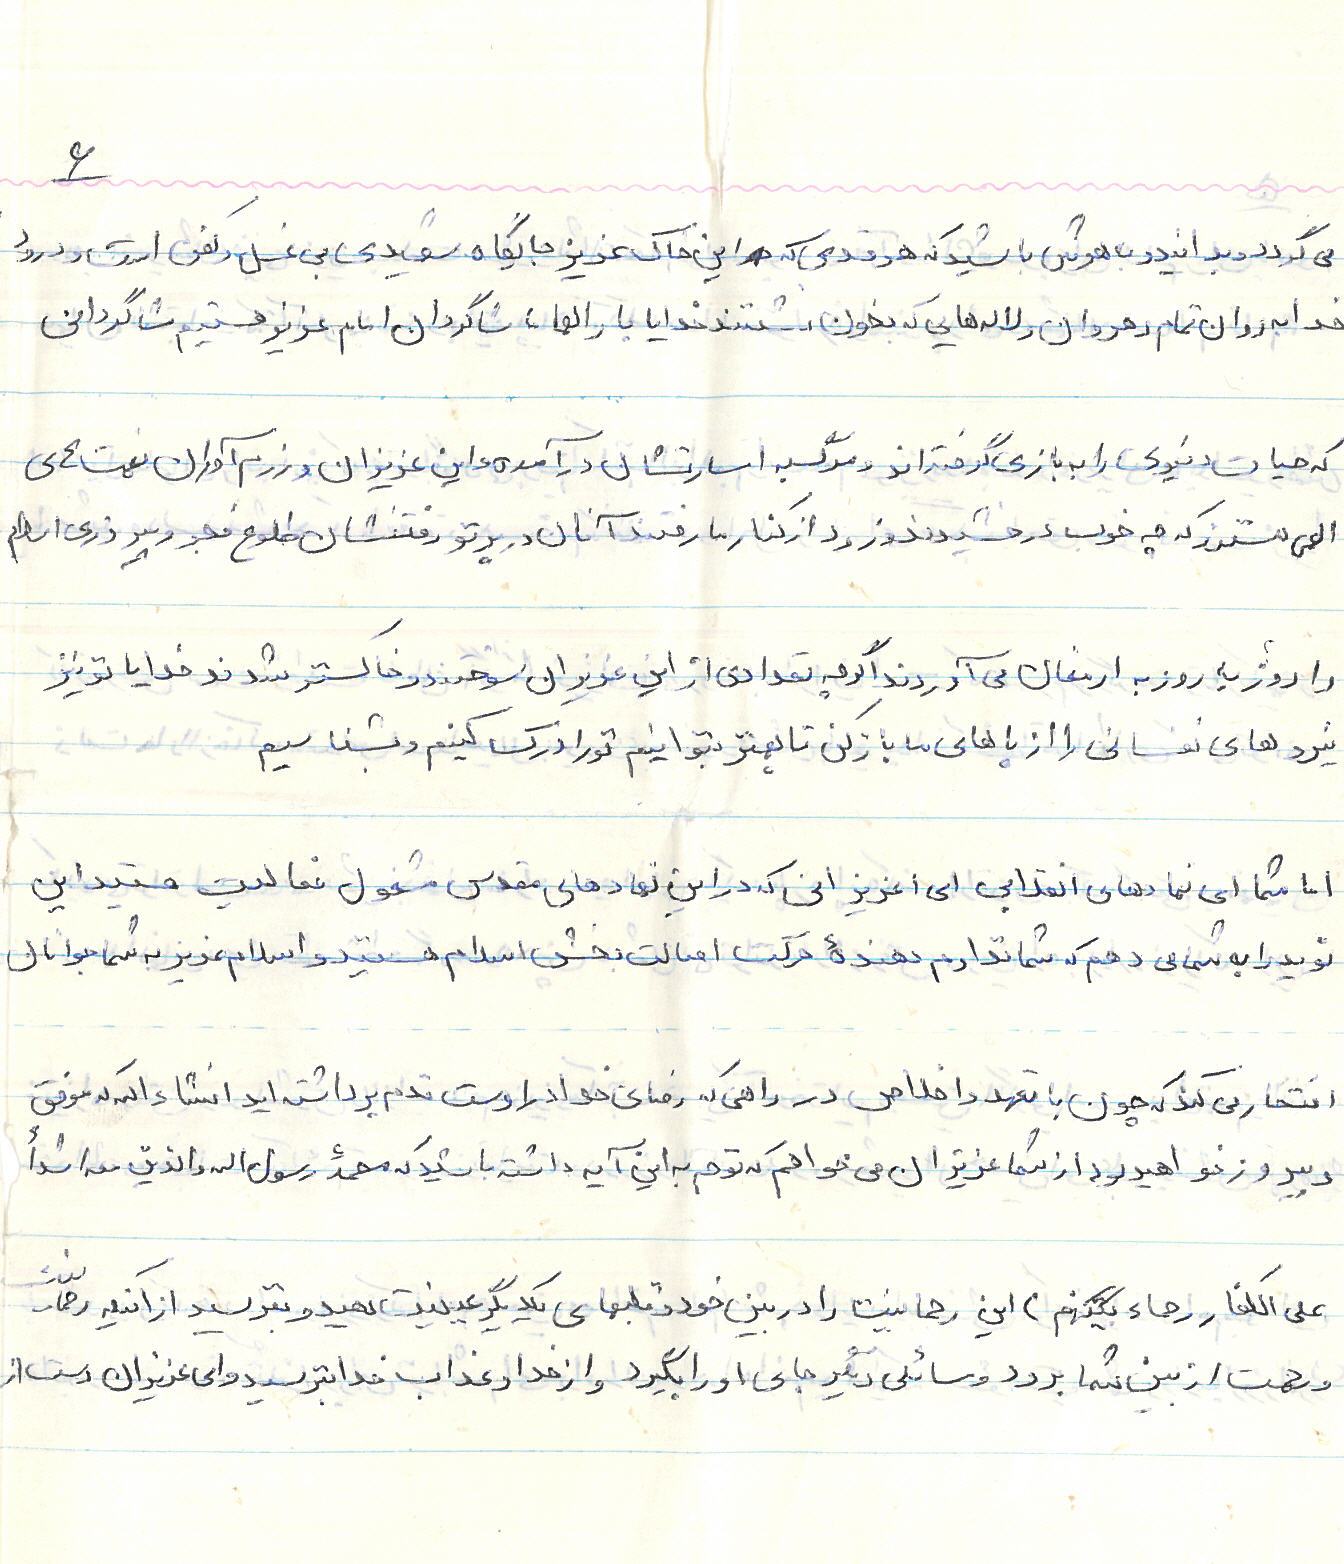 ۶
می گردد و بدانید و با هوش باشید که هر قدمی که در این خاک عزیز جایگاه شهیدی بی غسل و کفن است و درود
خدا به روان تمام رهروان و لاله هایی که بخون نشستند خدایا بار الها ما شاگردان امام عزیز هستیم شاگردانی
که حیات دنیوی را به بازی گرفته اند و مرگ به اسارتشان درآمده و این عزیزان و رزم آوران نعمت های
الهی هستند که چه خوب درخشیدند و زود از کنار ما رفتند آنان در پرتو رفتنشان طلوع فجر و پیروزی اسلام
را روز به روز به ارمغان می آوردند اگر چه تعدادی از این عزیزان سوختند و خاکستر شدند خدایا تو نیز
نیروهای نفسانی را از پاهای ما باز کن تا بهتر بتوانیم تو را درک کنیم و بشناسیم
اما شما ای نمادهای انقلابی ای عزیزانی که در این نهادهای مقدس مشغول فعالیت هستید این
نوید را به شما می دهم که شما تداوم دهندهٔ حرکت اصالت بخش اسلام هستید و اسلام عزیز به شما جوانان
افتخار می کند که چون با تعهد و اخلاص در راهی که رضای خدا در اوست قدم برداشته اید انشاء اله که موفق
و پیروز خواهید بود از شما عزیزان می خواهم که توجه به این آیه داشته باشید که محمدٌ رسول اله والذین معه اشداءُ
علی الکفار رحماء بینهم) این رحمانیت را در بین خود و قلبهای یکدیگر عینیت دهید و بترسید از اینکه رحمانیت
و رحمت از بین شما برود و مسائلی دیگر جای او را بگیرد و از خدا و عذاب خدا بترسید و ای عزیزان دست از